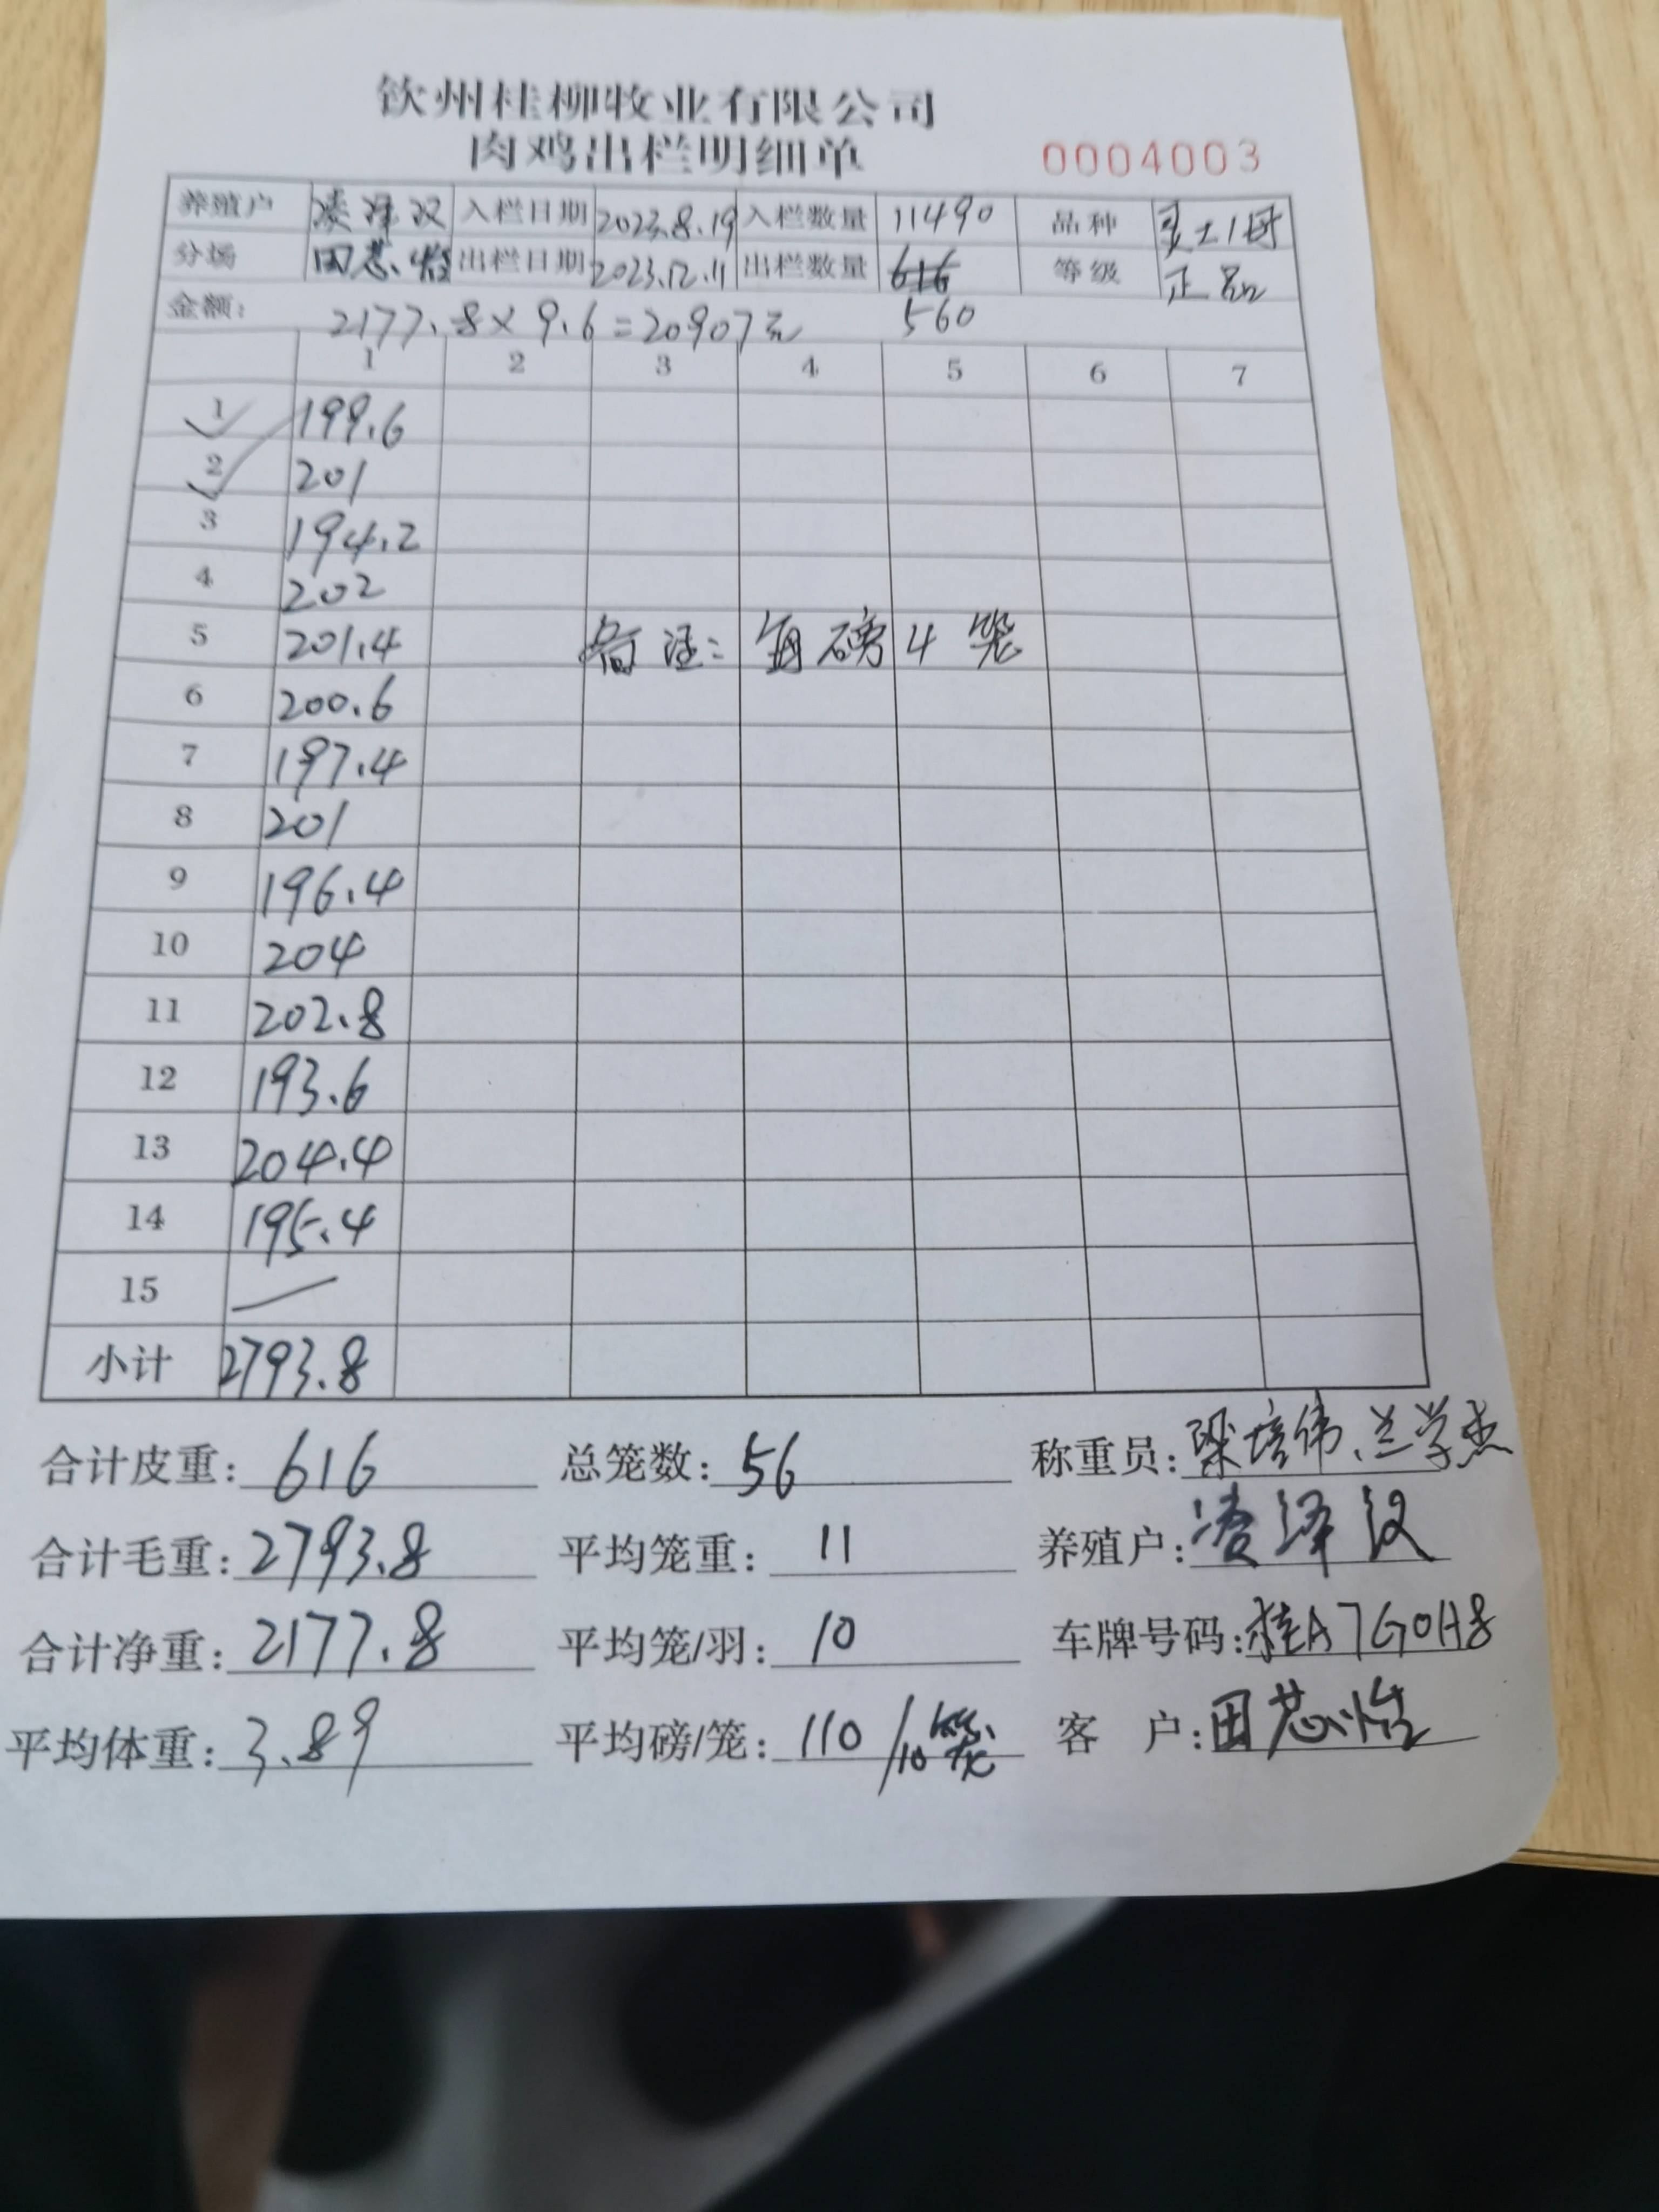 钦州桂柳牧业有限公司
肉鸡出栏明细单 0004003
养殖户 凌泽汉 入栏日期 2023.8.19 入栏数量 11490 品种 土1母
分场 田芯怡 出栏日期 2023.12.11 出栏数量 616 等级 正品
金额: 2177.8×9.6=20907元 560
1 2 3 4 5 6 7
1 199.6
2 201
3 194.2
4 202
5 201.4 备注: 每磅4笼
6 200.6
7 197.4
8 201
9 196.4
10 204
11 202.8
12 193.6
13 204.4
14 195.4
15 —
小计 2793.8
合计皮重: 616 总笼数: 56 称重员: 梁培伟、兰学杰
合计毛重: 2793.8 平均笼重: 11 养殖户: 凌泽汉
合计净重: 2177.8 平均笼/羽: 10 车牌号码: 桂A7G0H8
平均体重: 3.89 平均磅/笼: 110/10笼 客户: 田芯怡